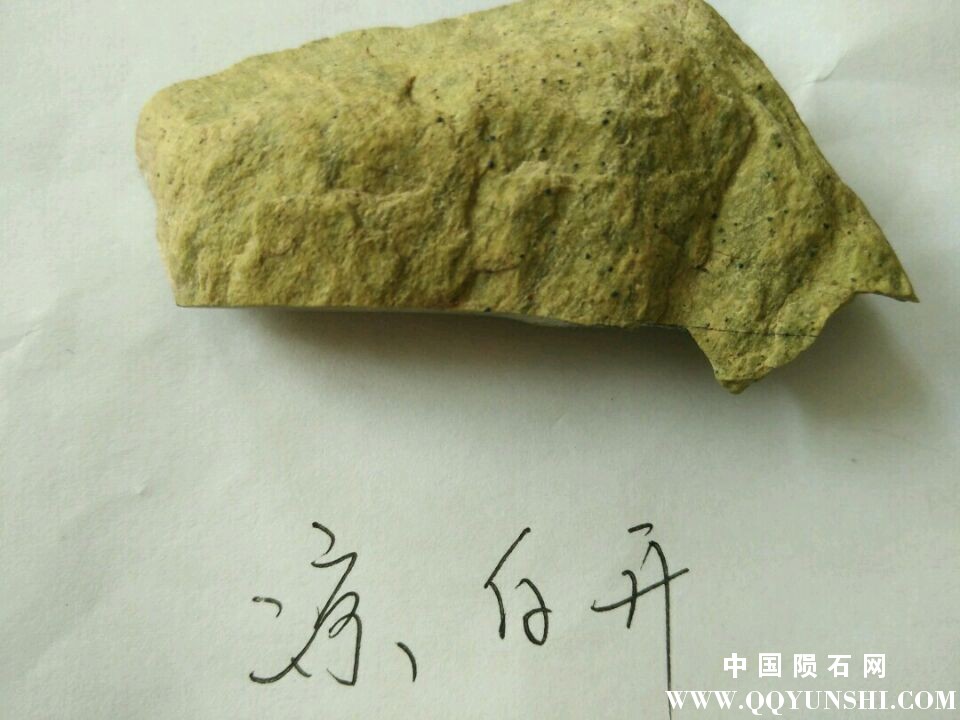 凉白开
中国陨石网
WWW.QQYUNSHI.COM